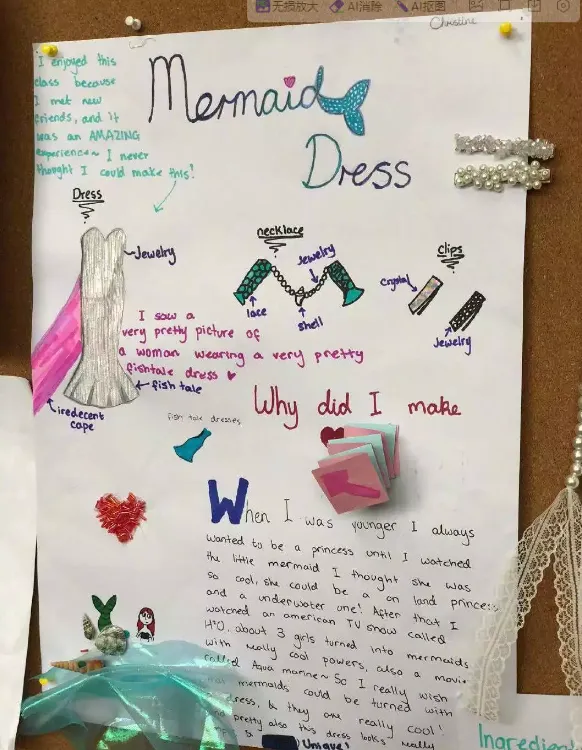 无损放大 AI消除 AI抠图
Christine
I enjoyed this
class because
I met new
friends, and it
was an AMAZING
experience~ I never
thought I could make this!
Mermaid
Dress
Dress
Jewelry
fish tale
iredecent
cape
necklace
Jewelry
lace
shell
clips
crystal
Jewelry
I saw a
very pretty picture of
a woman wearing a very pretty
fishtale dress
fish tale dresses
Why did I make
When I was younger I always
wanted to be a princess until I watched
the little mermaid I thought she was
so cool, she could be a on land princess
and a underwater one! After that I
watched an american TV show called
H²O, about 3 girls turned into mermaids
with really cool powers, also a movie
called Aqua marine~ So I really wish
mermaids could be turned with
dress, & they are really cool!
pretty also this dress looks really
Unique!
Ingredien